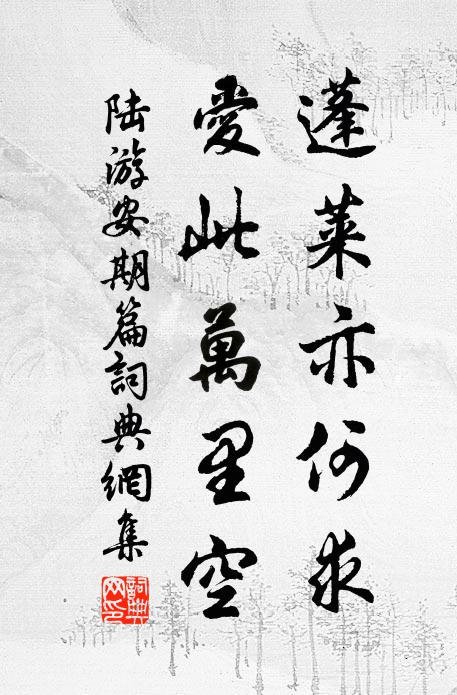 蓬萊亦何求
愛此萬里空
陆游安期篇詞典網集
詞典
网印